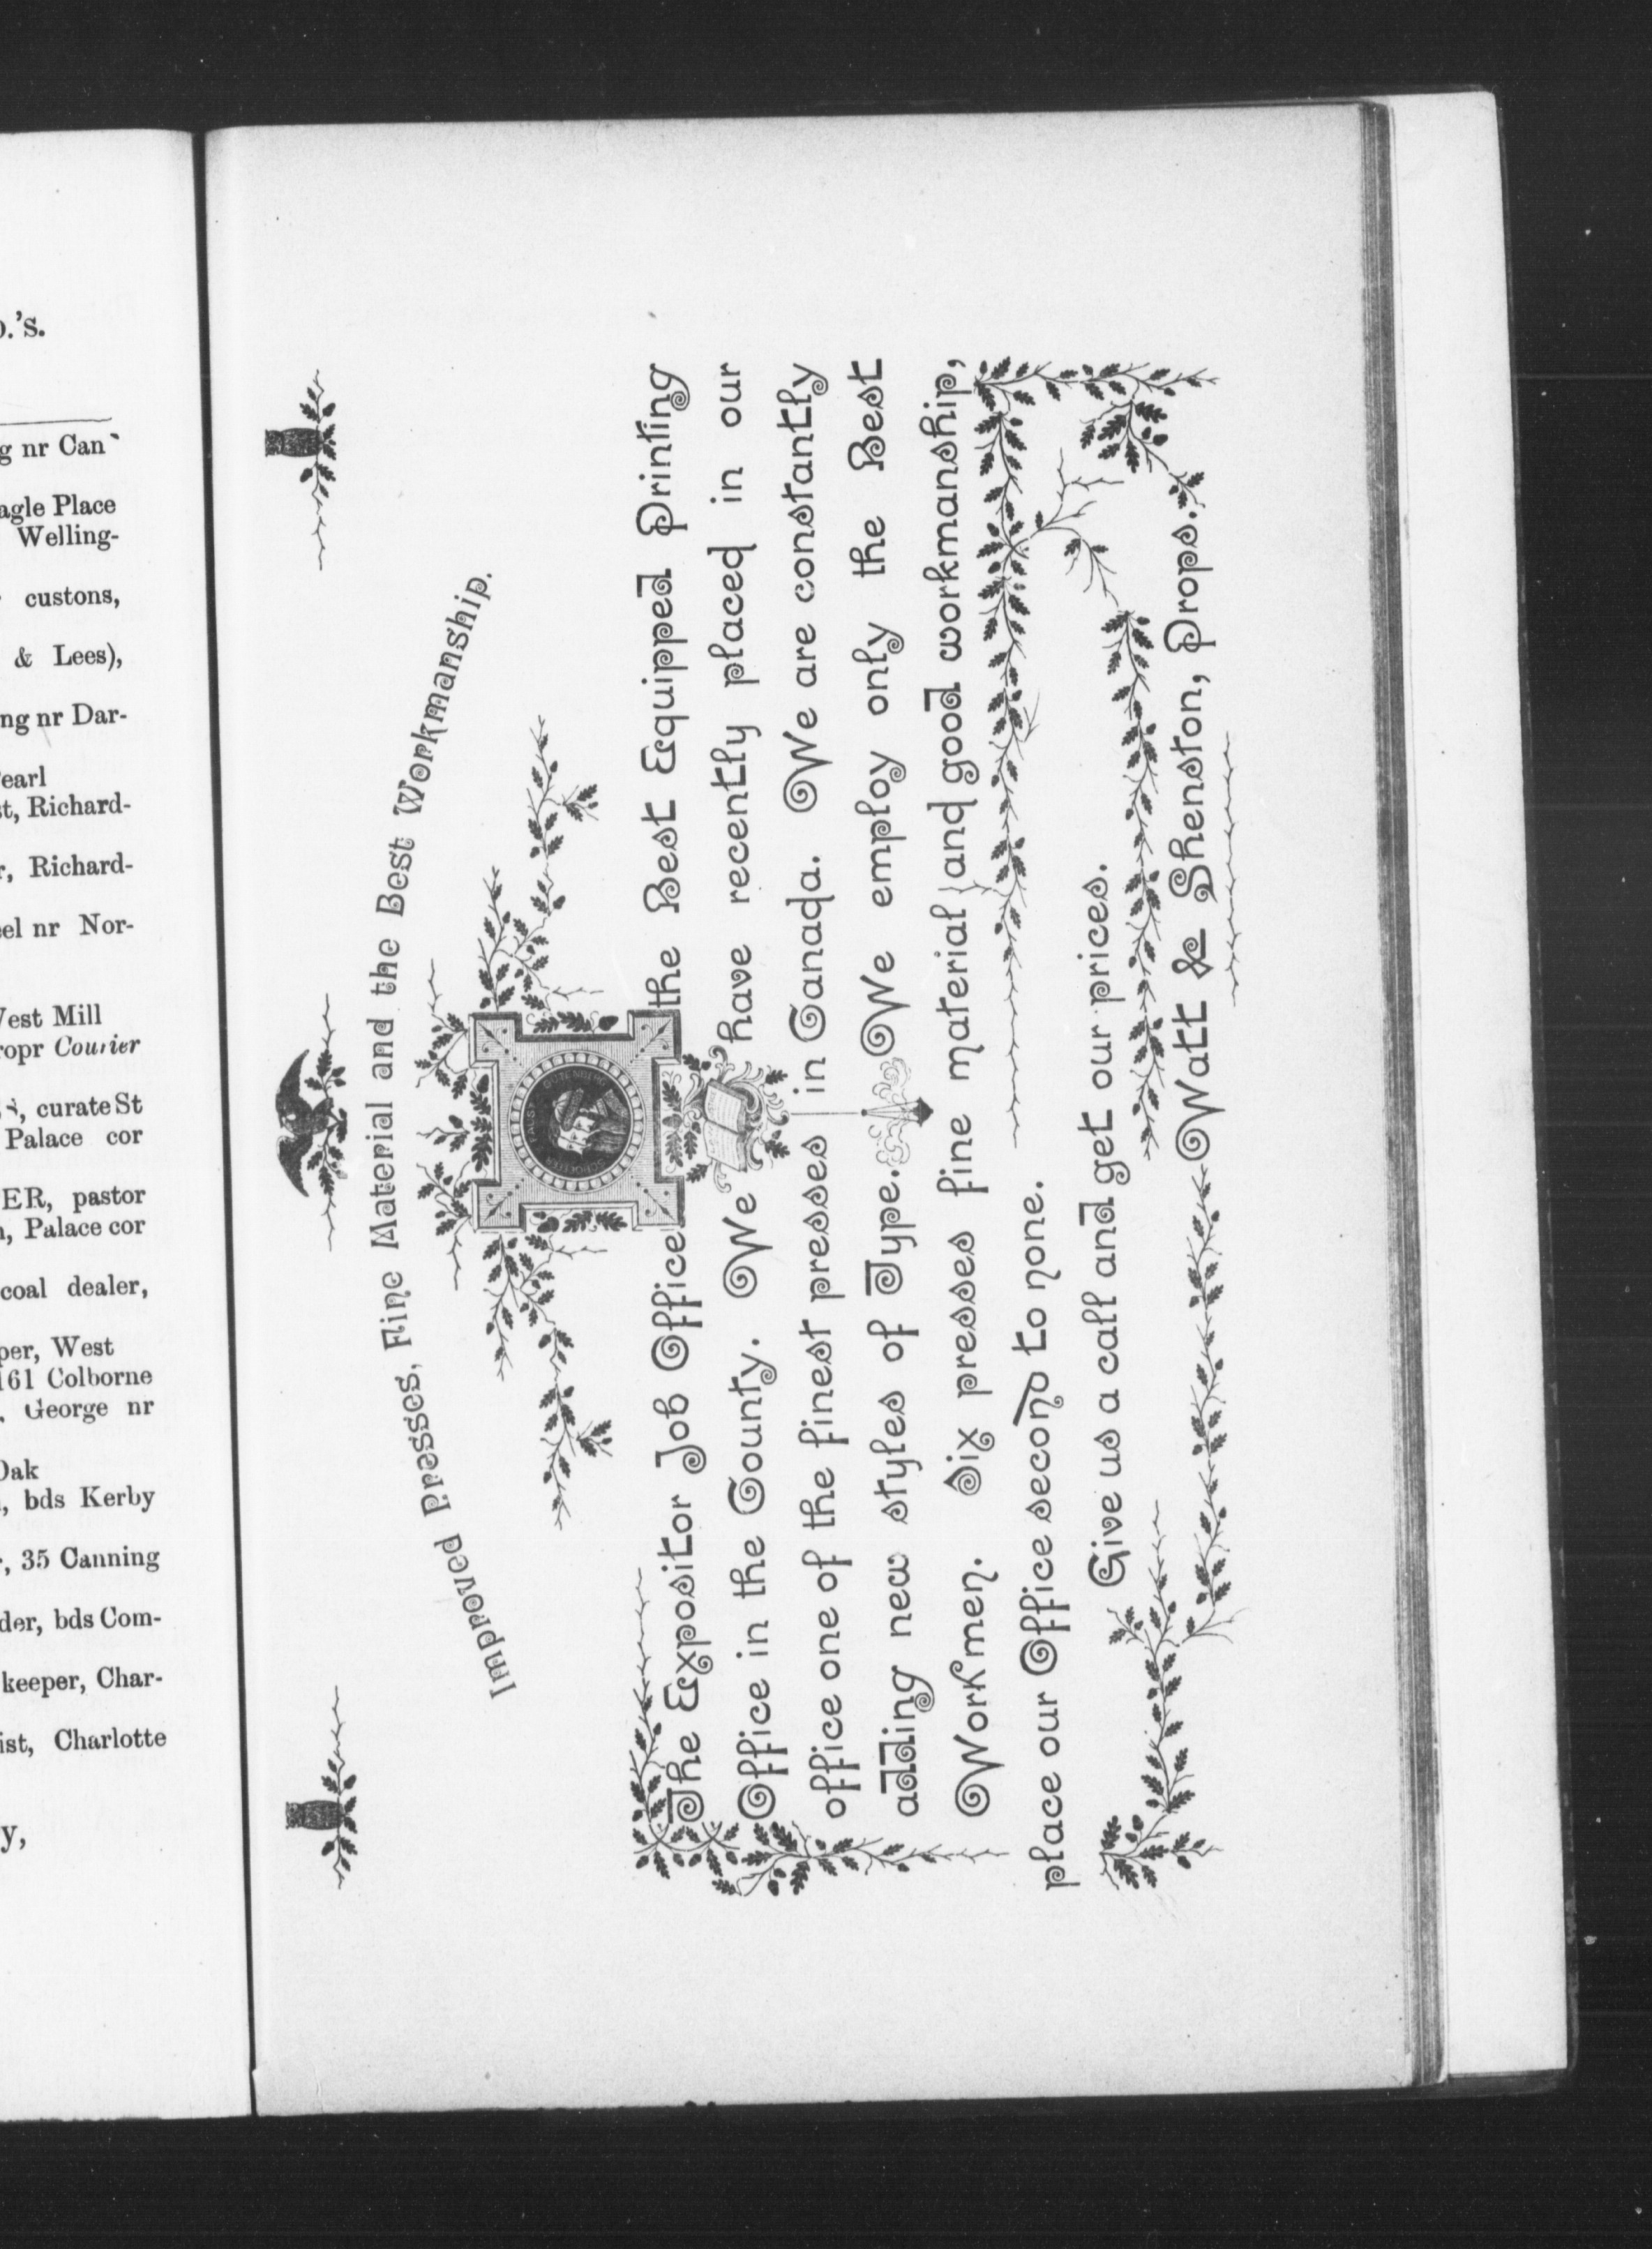 O.'s.
g nr Can
agle Place
Welling-
custons,
& Lees),
ng nr Dar-
earl
st, Richard-
r, Richard-
eel nr Nor-
West Mill
ropr Courier
curate St
Palace cor
ER, pastor
n, Palace cor
coal dealer,
per, West
161 Colborne
George nr
Oak
, bds Kerby
, 35 Canning
der, bds Com-
keeper, Char-
ist, Charlotte
y,
Improved Presses, Fine Material and the Best Workmanship.
SCHOEFFER FAUST GUTENBERG
The Expositor Job Office the Best Equipped Printing
Office in the County. We have recently placed in our
office one of the finest presses in Canada. We are constantly
adding new styles of Type. We employ only the Best
Workmen. Six presses fine material and good workmanship,
place our Office second to none.
Give us a call and get our prices.
Watt & Shenston, Props.